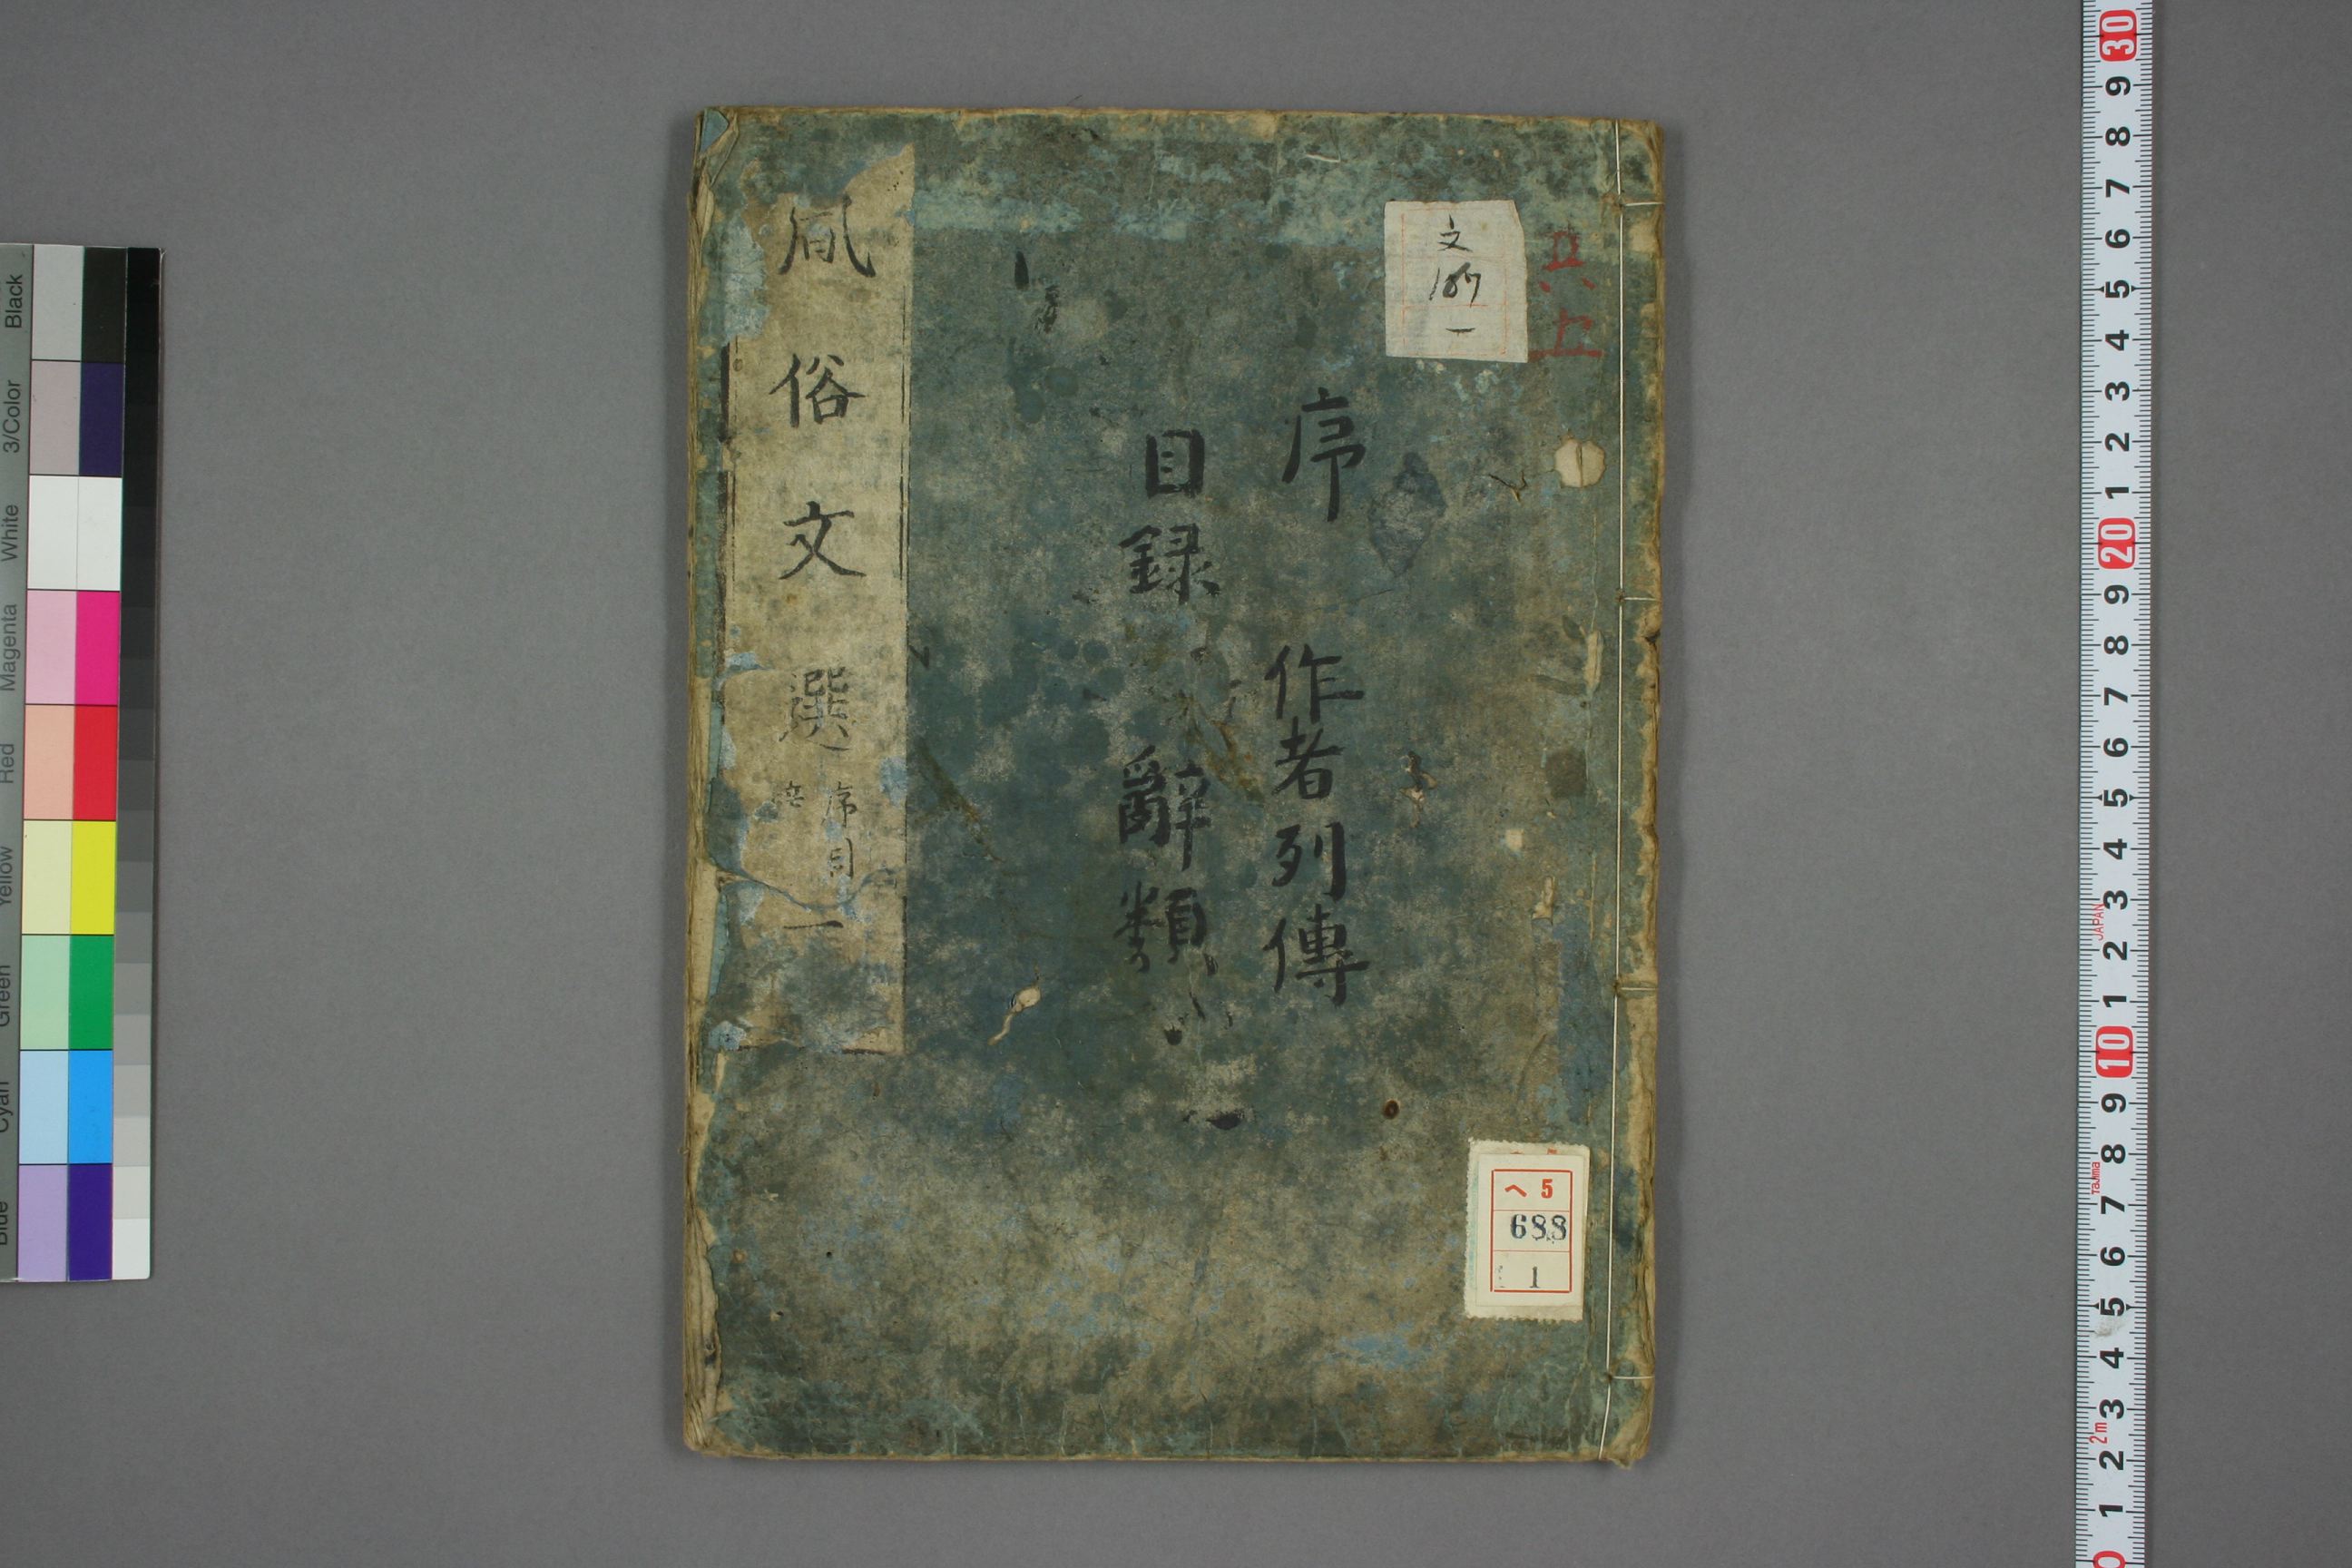 共上
文
187
一
序 作者列傳
目録 辭類
風俗文選
序目
一
へ 5
688
1
Black
3/Color
White
Magenta
Red
Yellow
Green
Cyan
Blue
30
9
8
7
6
5
4
3
2
1
20
9
8
7
6
5
4
3
2
1
10
9
8
7
6
5
4
3
2
1
0
JAPAN
Tajima
2m